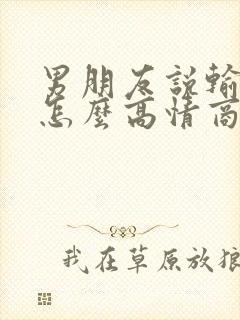 男朋友說輸
怎麼高情商
我在草原放狼